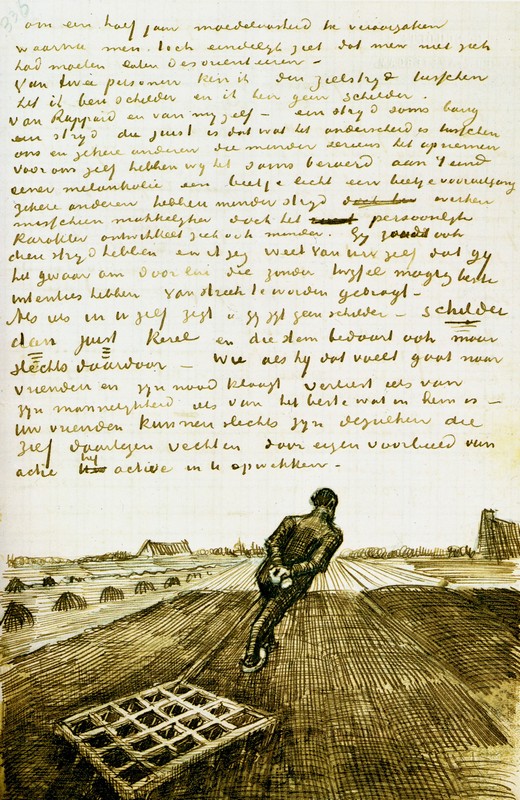 336
om een half jaar moedeloosheid te veroorzaken
waarna men toch eindelijk ziet dat men niet zich
had moeten laten desorienteeren –
Van twee personen ken ik den zielstrijd tusschen
het ik ben schilder en ik ben geen schilder.
Van Rappard en van mijzelf – een strijd soms bang
een strijd die juist is dat wat het onderscheid is tusschen
ons en zekere anderen die minder serieus het opnemen
Voor ons zelf hebben wij het soms beroerd aan 't eind
eener melankolie een beetje licht een beetje vooruitgang
zekere anderen hebben minder strijd werken
misschien makkelijker doch het persoonlijk
karakter ontwikkelt zich ook minder. Gij zoudt ook
dien strijd hebben en ik zeg weet van U zelf dat gij
het gevaar om door lui die zonder twijfel beste
intenties hebben van streek te worden gebragt –
Als iets in U zelf zegt gij zijt geen schilder – schilder
dan juist kerel en die stem bedaart ook maar
slechts daardoor – Wie als hij dat voelt gaat naar
vrienden en zijn nood klaagt verliest iets van
zijn mannelijkheid iets van het beste wat in hem is –
Uw vrienden kunnen slechts zijn dezulken die
zelf daartegen vechten door eigen voorbeeld van
actie active in U opwekken –